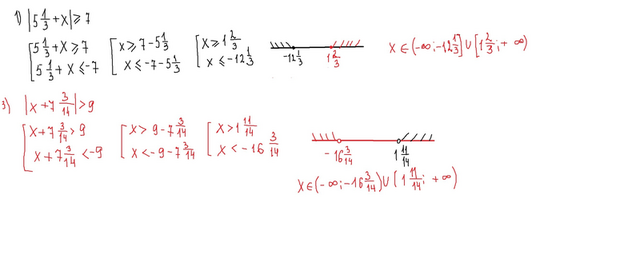 1) |5 1/3 + x| ≥ 7
[ 5 1/3 + x ≥ 7 [ x ≥ 7 - 5 1/3 [ x ≥ 1 2/3
[ 5 1/3 + x ≤ -7 [ x ≤ -7 - 5 1/3 [ x ≤ -12 1/3
-12 1/3 1 2/3
x ∈ (-∞; -12 1/3] ∪ [1 2/3; +∞)
3) |x + 7 3/14| > 9
[ x + 7 3/14 > 9 [ x > 9 - 7 3/14 [ x > 1 11/14
[ x + 7 3/14 < -9 [ x < -9 - 7 3/14 [ x < -16 3/14
-16 3/14 1 11/14
x ∈ (-∞; -16 3/14) ∪ (1 11/14; +∞)